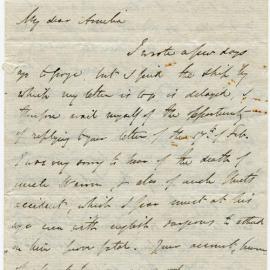 My dear Amelia
I wrote a few days
ago to but I find the ship by
which my letter is to go is delayed, I
therefore avail myself of the opportunity
of replying to your letter of the of Feb.
I was very sorry to hear of the death of
uncle & also of uncle
accident, which I fear must at his
age even with to attend
on him prove fatal. Your account, however